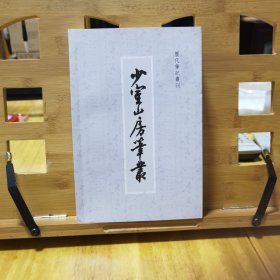 歷代筆記叢刊
少室山房筆叢